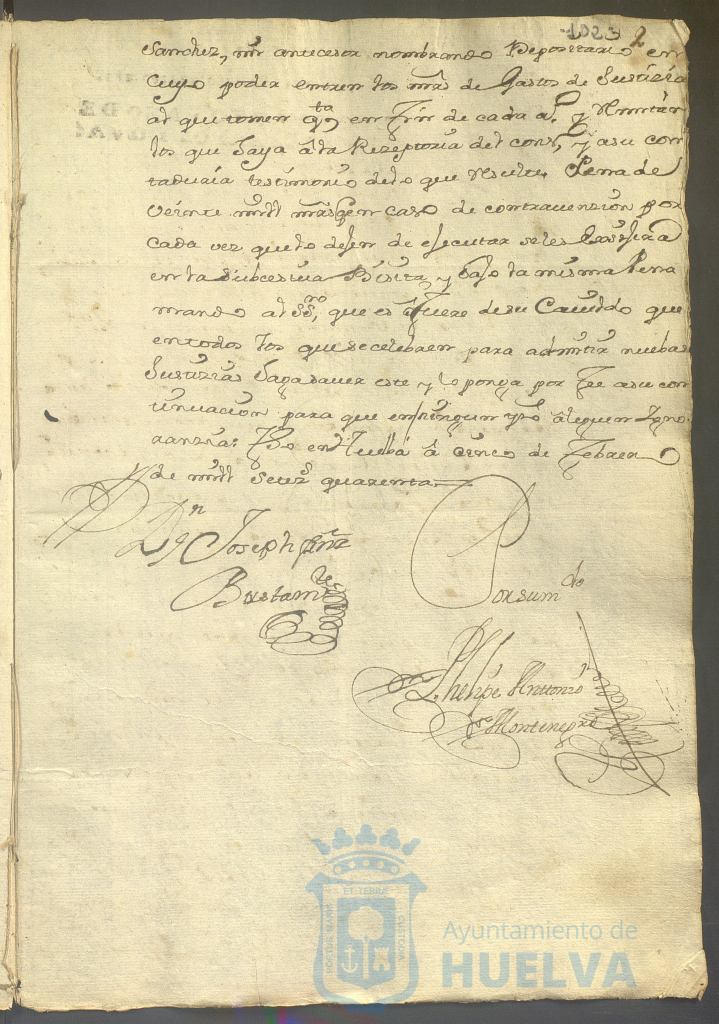 1023 2
Sanchez, mi antecesor nombrando Depositario en
cuyo poder entren los mrs de Gastos de Justizia
al que tomen qta en fin de cada a. y Remitan
los que haya â la Rezeptoria del cons, y a su con
taduaia testimonio delo que Resulte Pena de
veinte mill mrs en caso de contravenzion por
cada vez que lo dejen de ejecutar seles Exsijira
en la subcesiva Bisita, y bajo la misma Pena
mando al SSno, que es ô fuere de su Cauildo que
en todos los que se celebraen para admitir nuebas
Justizias haga sauer este y lo ponga por fee a su con
tinuacion para que en ningun tpo âleguen Igno
ranzia: fho en Huelba â cinco de Febrero
de mill Setez quarenta
Dn Joseph
Bustamte
Por su mdo
Phelipe Anttonio
Montenegro
ET TERRÆ
CUSTODIA
PORTUS MARIS
Ayuntamiento de
HUELVA